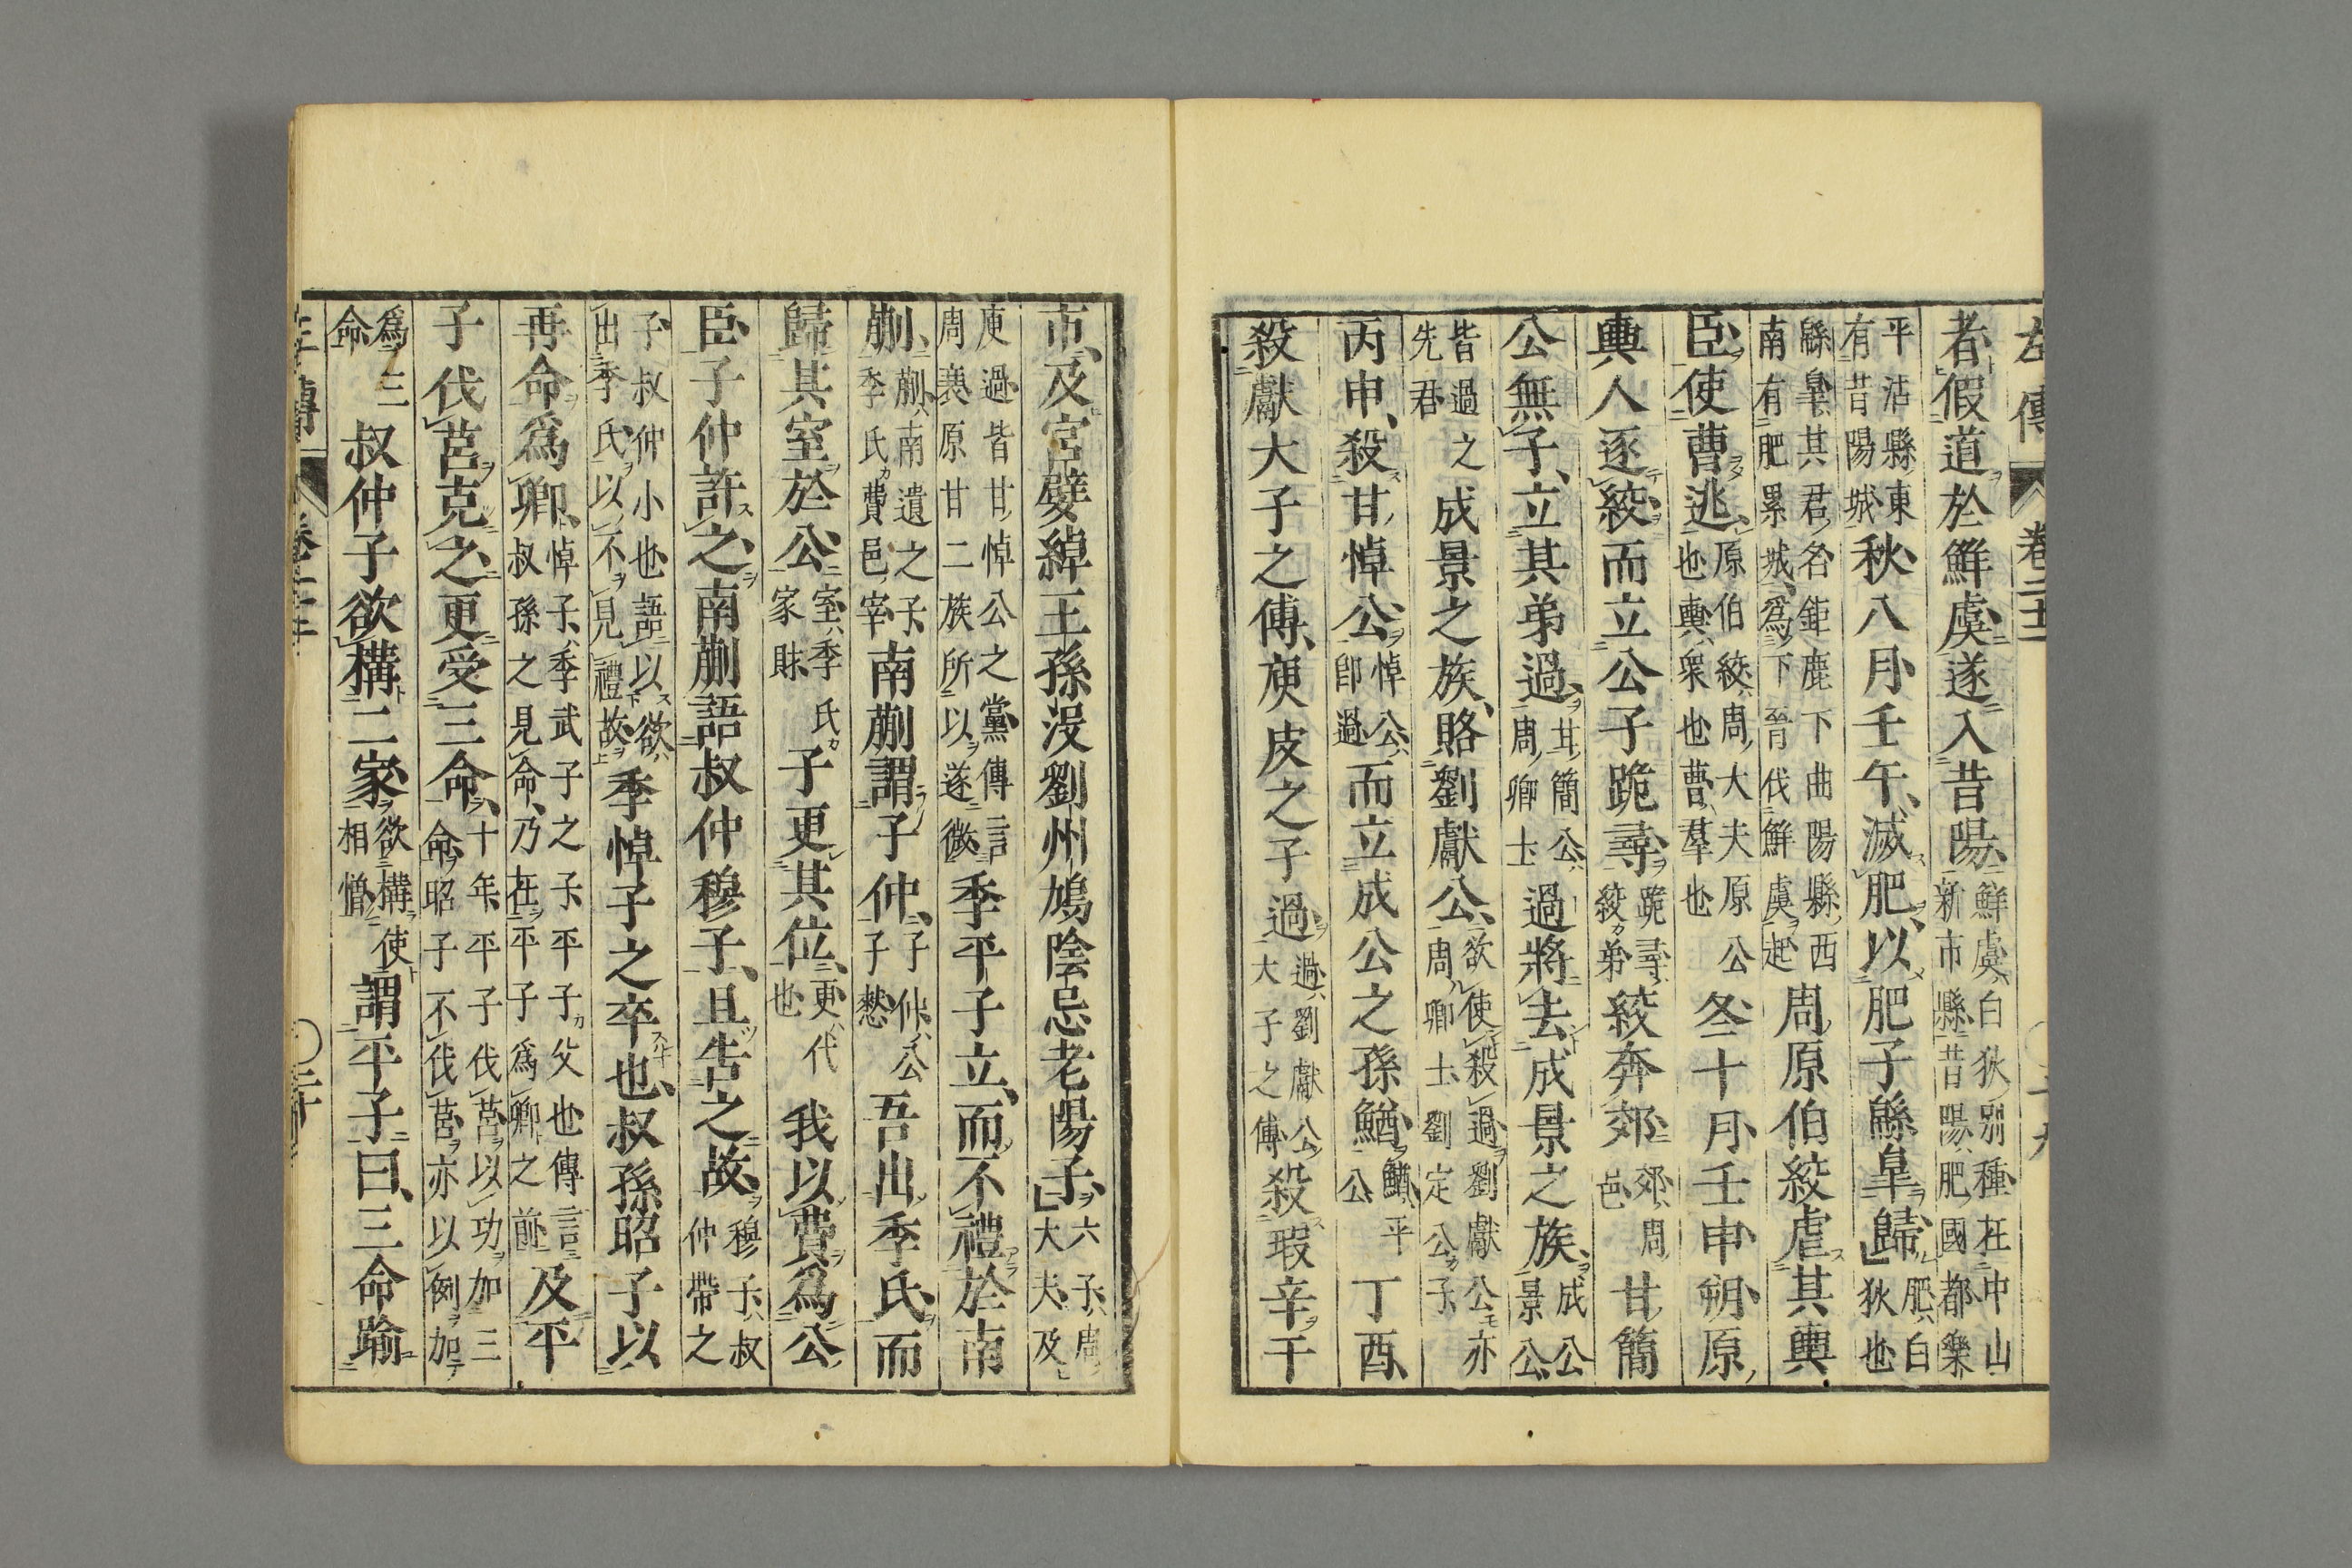 左傳 卷二十二
者假道於鮮虞遂入昔陽鮮虞白狄別種在中山新市縣昔陽肥國都樂
平沾縣東有昔陽城秋八月壬午滅肥以肥子緜皐歸肥白狄也
緜皐其君名鉅鹿下曲陽縣西南有肥累城爲下晉伐鮮虞起周原伯絞虐其輿
臣使曹逃原伯絞周大夫原公也輿衆也曹羣也冬十月壬申朔原
輿人逐絞而立公子跪尋跪尋絞弟絞奔郊郊周邑甘簡
公無子立其弟過甘簡公周卿士過將去成景之族成公景公
皆過之先君成景之族賂劉獻公欲使殺過劉獻公亦周卿士劉定公子
丙申殺甘悼公悼公卽過而立成公之孫鰌鰌平公丁酉
殺獻大子之傅庾皮之子過過劉獻公大子之傅殺瑕辛于
市及宮嬖綽王孫沒劉州鳩陰忌老陽子六子周大夫及
庾過皆甘悼公之黨傳言周衰原甘二族所以遂微季平子立而不禮於南
蒯蒯南遺之子季氏費邑宰南蒯謂子仲子仲公子憖吾出季氏而
歸其室於公室季氏家財子更其位更代也我以費爲公
臣子仲許之南蒯語叔仲穆子且告之故穆子叔仲帶之
子叔仲小也語以欲出季氏以不見禮故季悼子之卒也叔孫昭子以
再命爲卿悼子季武子之子平子父也傳言叔孫之見命乃在平子爲卿之前及平
子伐莒克之更受三命十年平子伐莒以功加三命昭子不伐莒亦以例加
爲三命叔仲子欲構二家欲構使相憎謂平子曰三命踰
左傳 卷二十二 二十